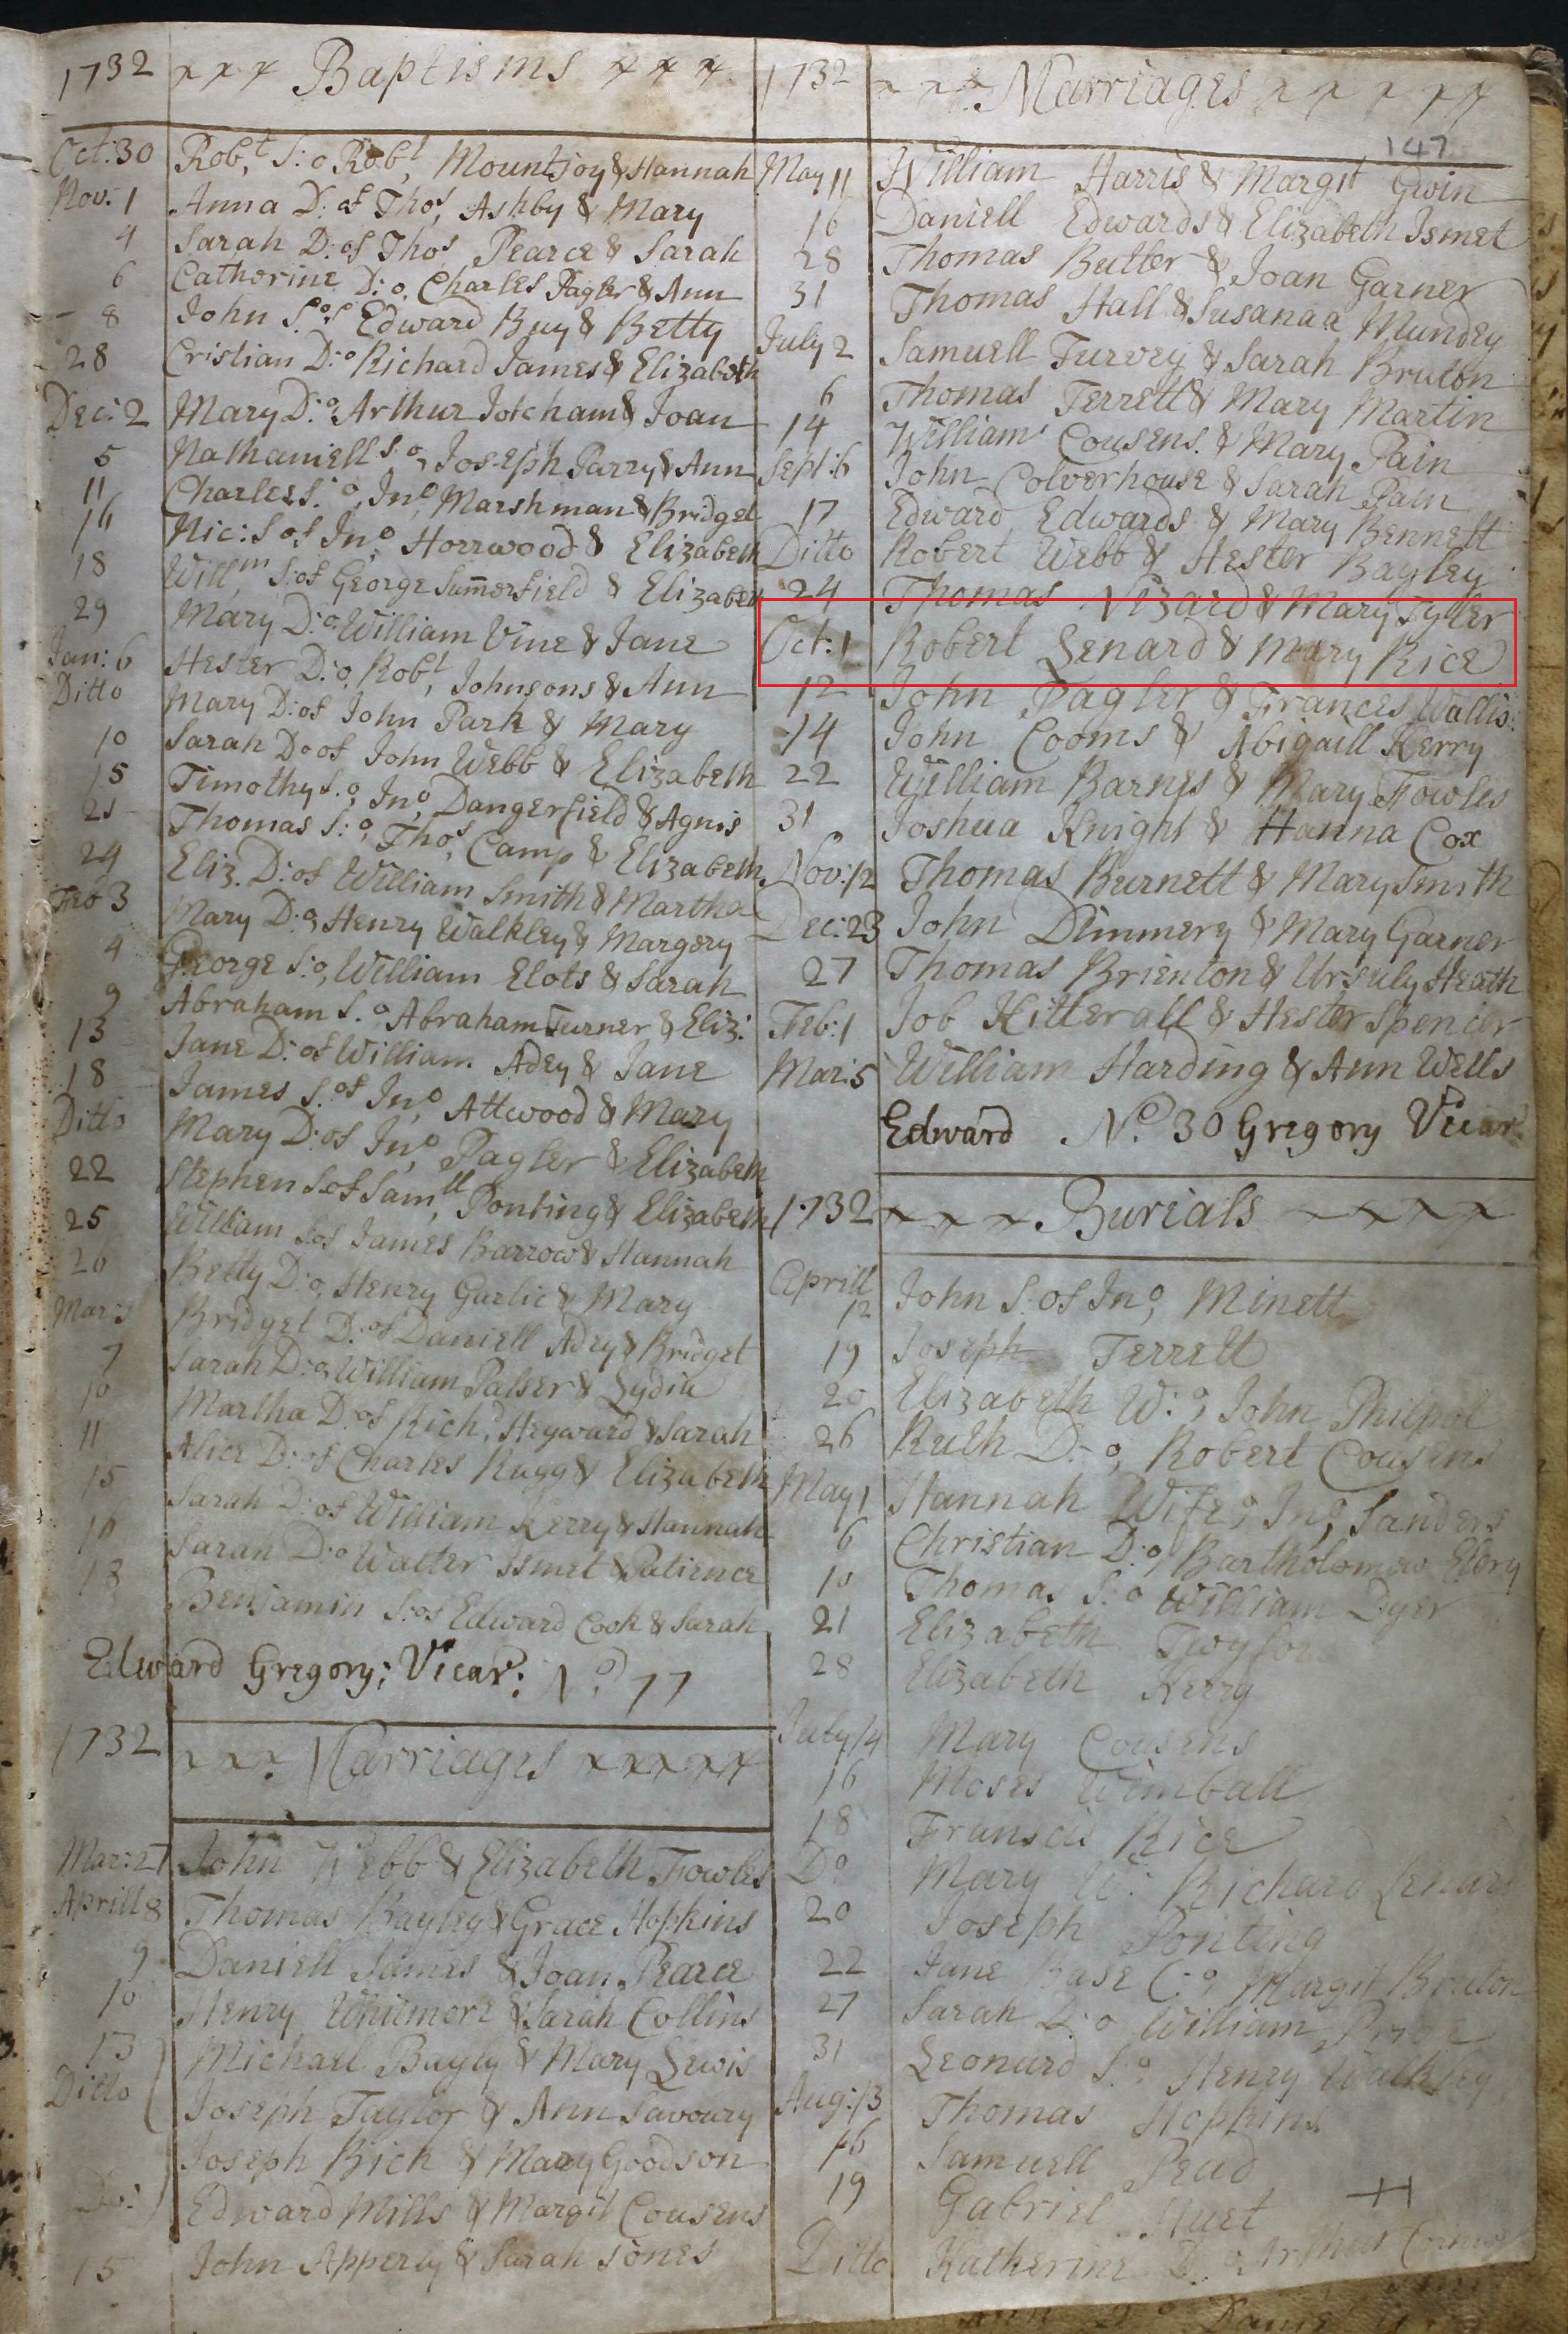 1732 x x x Baptisms x x x
Oct: 30 Rob,t S: o Robt, Mountjoy & Hannah
Nov: 1 Anna D: of Thos, Ashby & Mary
4 Sarah D: of Thos Pearce & Sarah
6 Catherine D: o, Charles Pagler & Ann
8 John S: of Edward Buy & Betty
28 Cristian D: o Richard James & Elizabeth
Dec: 2 Mary D: o, Arthur Jotcham & Joan
5 Nathaniell S o, Joseph Parry & Ann
11 Charles S: o, Jno, Marshman & Bridget
16 Nic: S of Jno, Horrwood & Elizabeth
18 Willm S: of George Summerfield & Elizabeth
29 Mary D: o William Vine & Jane
Jan: 6 Hester D: o, Robt, Johnsons & Ann
Ditto Mary D: of John Park & Mary
10 Sarah D: of John Webb & Elizabeth
15 Timothy S: o, Jno, Dangerfield & Agnis
21 Thomas S: o, Thos, Camp & Elizabeth
24 Eliz. D: of William Smith & Martha
Feb 3 Mary D: o, Henry Walkley & Margery
4 George S: o, William Elots & Sarah
9 Abraham S. o, Abraham Turner & Eliz:
13 Jane D: of William Adey & Jane
18 James S. of Jno, Attwood & Mary
Ditto Mary D: of Jno, Pagler & Elizabeth
22 Stephen S. of Samll, Ponting & Elizabeth
25 William S of James Barrow & Hannah
26 Betty D: o, Henry Garlic & Mary
Mar: Bridget D: of Daniell Adey & Bridget
7 Sarah D: o, William Palser & Lydia
10 Martha D: of Richd, Heyward & Sarah
11 Alice D: of Charles Rugg & Elizabeth
15 Sarah D: of William Kerry & Hannah
16 Sarah D: o Walter Ismet & Patience
18 Benjamin S: of Edward Cook & Sarah
Edward Gregory; Vicar: No, 77
1732 x x x Marriages x x x x x
Mar: 27 John Webb & Elizabeth Fowles
Aprill 8 Thomas Bayley & Grace Hopkins
9 Daniell James & Joan Pearce
10 Henry Whitmore & Sarah Collins
13 Michael Bayly & Mary Lewis
Ditto Joseph Taylor & Ann Savoury
Joseph Rich & Mary Goodson
Do: Edward Mills & Margit Cousens
15 John Apperly & Sarah Jones
1732 x x x Marriages x x x x x
147
May 11 William Harris & Margit Gwin
16 Daniell Edwards & Elizabeth Ismet
28 Thomas Butler & Joan Garner
31 Thomas Hall & Susanaa Mundey
July 2 Samuell Turvey & Sarah Bruton
6 Thomas Terrett & Mary Martin
14 William Cousens & Mary Pain
Sept: 6 John Colverhouse & Sarah Pain
17 Edward Edwards & Mary Bennett
Ditto Robert Webb & Hester Bayley
24 Thomas Vizard & Mary Tyler
Oct: 1 Robert Lenard & Mary Rice
12 John Pagler & Frances Wallis:
14 John Cooms & Abigaill Kerry
22 William Barnes & Mary Fowles
31 Joshua Knight & Hanna Cox
Nov: 12 Thomas Burnett & Mary Smith
Dec: 23 John Dimmery & Mary Garner
27 Thomas Brienton & Ursuly Heath
Feb: 1 Job Hitterall & Hester Spencer
Mar: 5 William Harding & Ann Wells
Edward No, 30 Gregory Vicar
1732 x x x Burials x x x x
Aprill 12 John S: of Jno, Minett
19 Joseph Terrett
20 Elizabeth W: o, John Philpot
26 Ruth D: o, Robert Cousens
May 1 Hannah Wife o, Jno, Sanders
6 Christian D: o, Bartholomew Ebry
10 Thomas S: o William Dyer
21 Elizabeth
28 Elizabeth Kerry
July 14 Mary Cousens
16 Moses Wimball
18 Fransis Rice
Do Mary W: Richard Lenard
20 Joseph Ponting
22 Jane Base C: o, Margit Bruton
27 Sarah D: o William
31 Leonard S: o Henry Walkley
Aug: 13 Thomas Hopkins
16 Samuell Pead
19 Gabriel Huet
Ditto Katherine D: o,